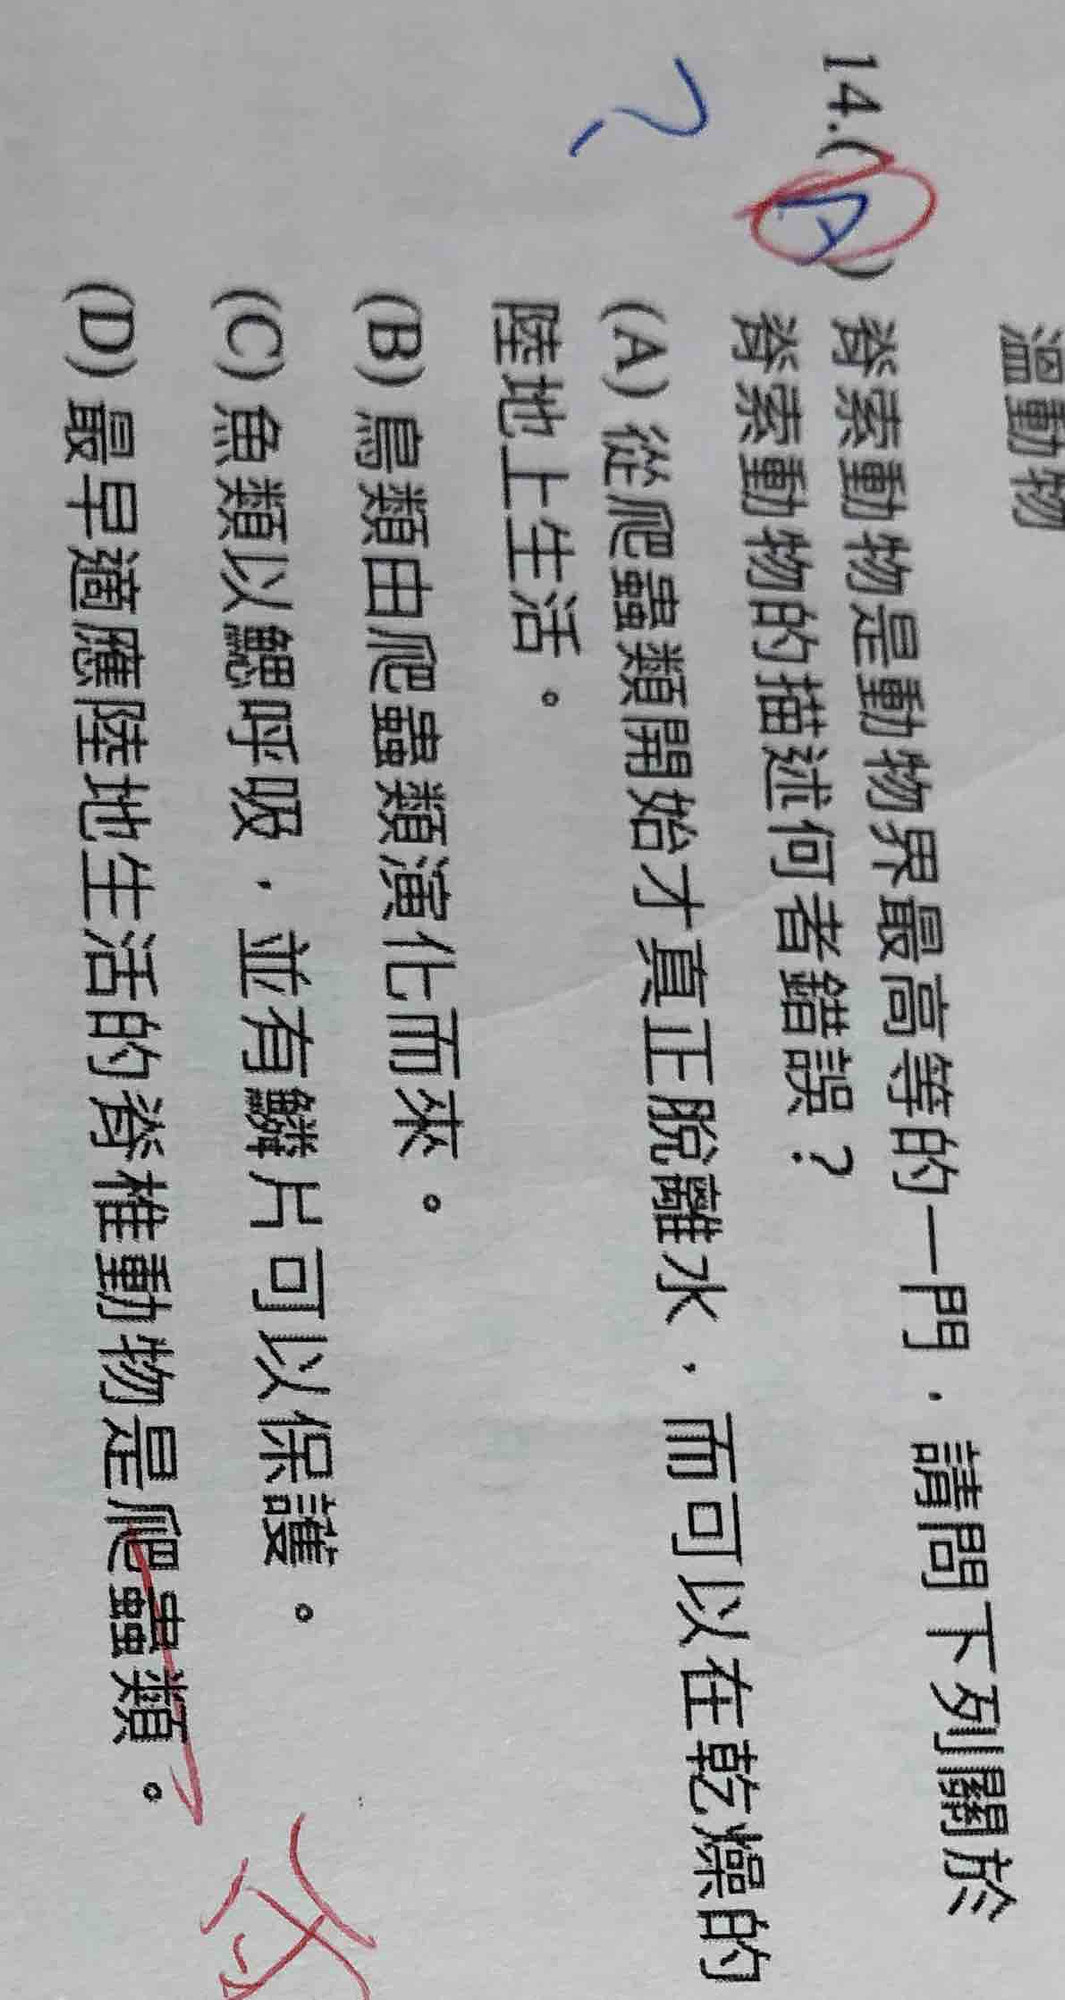 溫動物
14.(A) 脊索動物是動物界最高等的一門，請問下列關於
脊索動物的描述何者錯誤？
(A) 從爬蟲類開始才真正脫離水，而可以在乾燥的
陸地上生活。
(B) 鳥類由爬蟲類演化而來。
(C) 魚類以鰓呼吸，並有鱗片可以保護。
(D) 最早適應陸地生活的脊椎動物是爬蟲類。
?